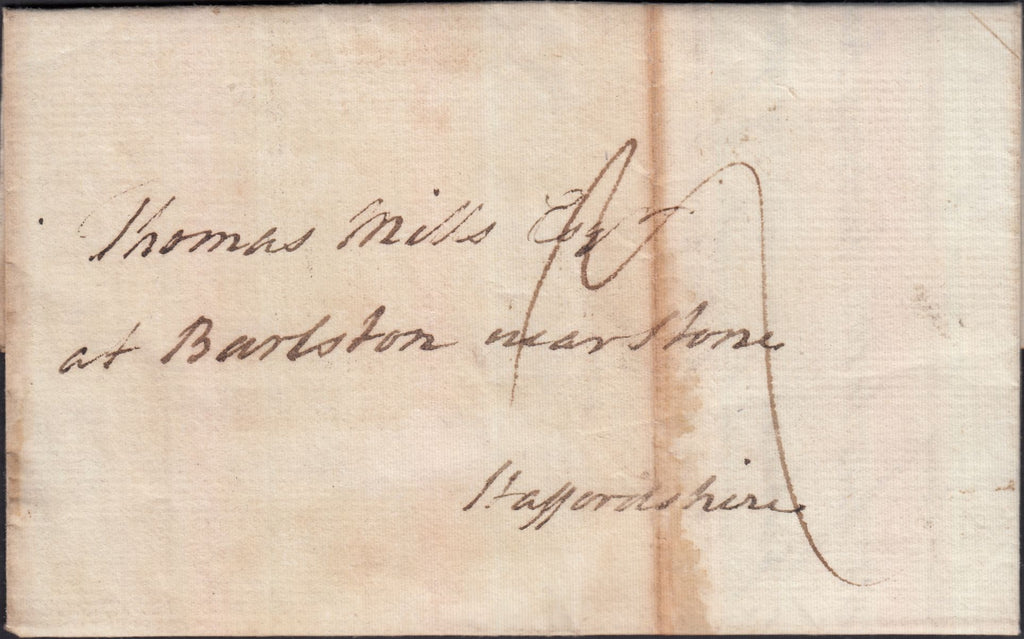 Thomas Mills Esqr
at Barlston near Stone
Staffordshire